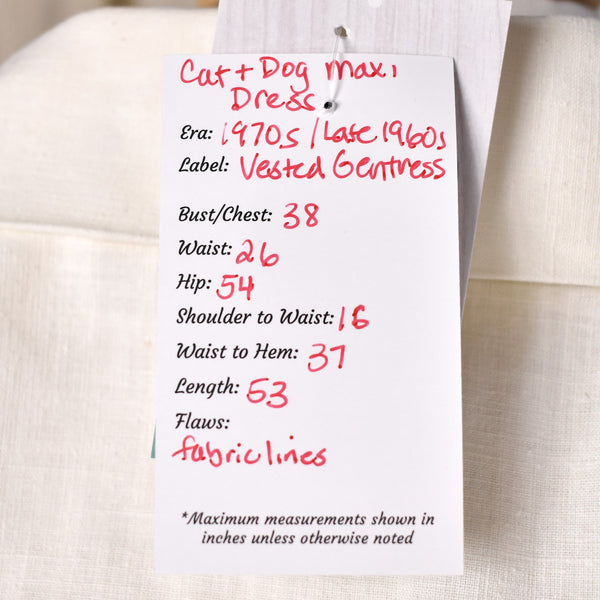 Cat + Dog maxi
Dress
Era: 1970s / Late 1960s
Label: Vested Gentress
Bust/Chest: 38
Waist: 26
Hip: 54
Shoulder to Waist: 16
Waist to Hem: 37
Length: 53
Flaws:
fabric lines
*Maximum measurements shown in
inches unless otherwise noted